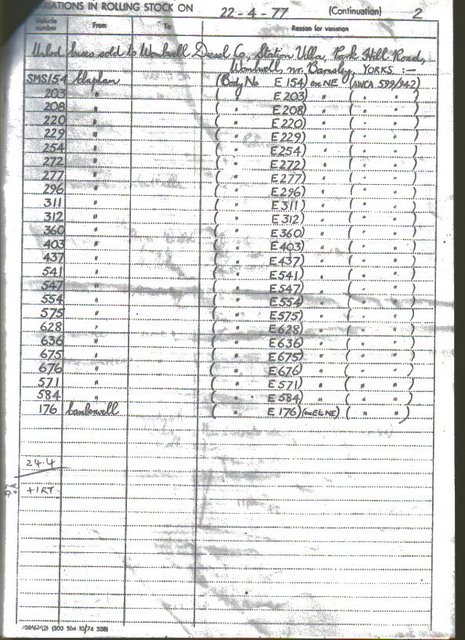 IATIONS IN ROLLING STOCK ON 22-4-77 (Continuation) 2
Vehicle number From To Reason for variation
Unlicd buses sold to Wombwell Diesel Co, Station Villa, Park Hill Road,
Wombwell, nr. Barnsley, YORKS. :
SMS154 Clapham (Body No E 154) on NE (AWCA 599/942)
203 " ( " E 203) " ( " " )
208 " ( " E 208) " ( " " )
220 " ( " E 220) " ( " " )
229 " ( " E 229) " ( " " )
254 " ( " E 254) " ( " " )
272 " ( " E 272) " ( " " )
277 " ( " E 277) " ( " " )
296 " ( " E 296) " ( " " )
311 " ( " E 311) " ( " " )
312 " ( " E 312) " ( " " )
360 " ( " E 360) " ( " " )
403 " ( " E 403) " ( " " )
437 " ( " E 437) " ( " " )
541 " ( " E 541) " ( " " )
547 " ( " E 547) " ( " " )
554 " ( " E 554) " ( " " )
575 " ( " E 575) " ( " " )
628 " ( " E 628) " ( " " )
636 " ( " E 636) " ( " " )
675 " ( " E 675) " ( " " )
676 " ( " E 676) " ( " " )
571 " ( " E 571) " ( " " )
584 " ( " E 584) " ( " " )
176 Camberwell ( " E 176) ( " " )
24.4
+1RT